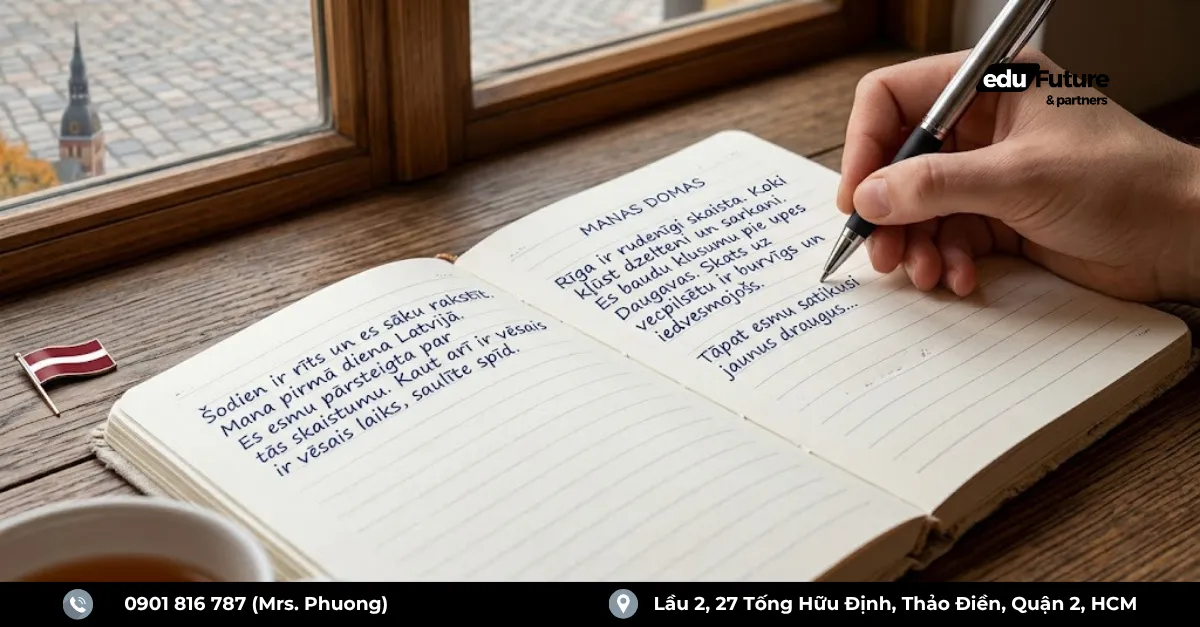 edu Future
& partners
Šodien ir rīts un es sāku rakstīt.
Mana pirmā diena Latvijā.
Es esmu pārsteigta par
tās skaistumu. Kaut arī ir vēsais
ir vēsais laiks, saulīte spīd.
MANAS DOMAS
Rīga ir rudenīgi skaista. Koki
kļūst dzelteni un sarkani.
Es baudu klusumu pie upes
Daugavas. Skats uz
vecpilsētu ir burvīgs un
iedvesmojošs.
Tāpat esmu satikusi
jaunus draugus...
0901 816 787 (Mrs. Phuong)
Lầu 2, 27 Tống Hữu Định, Thảo Điền, Quận 2, HCM